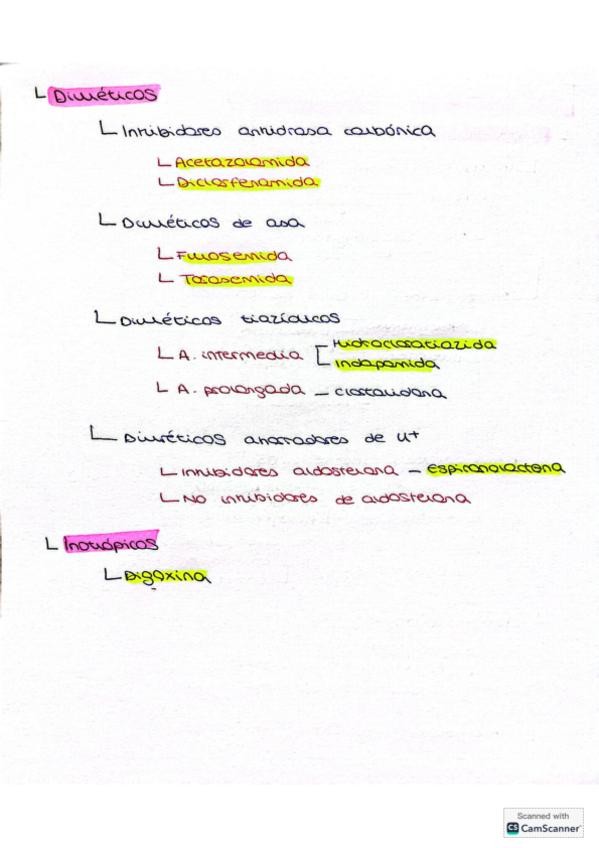 Diuréticos
Inhibidores anhidrasa carbónica
Acetazolamida
Diclofenamida
Diuréticos de asa
Furosemida
Torasemida
Diuréticos tiazídicos
Hidroclorotiazida
A. intermedia
Indapamida
A. prolongada - clortalidona
Diuréticos ahorradores de K+
Inhibidores aldosterona - Espironolactona
No inhibidores de aldosterona
Inotrópicos
Digoxina
Scanned with
CS CamScanner